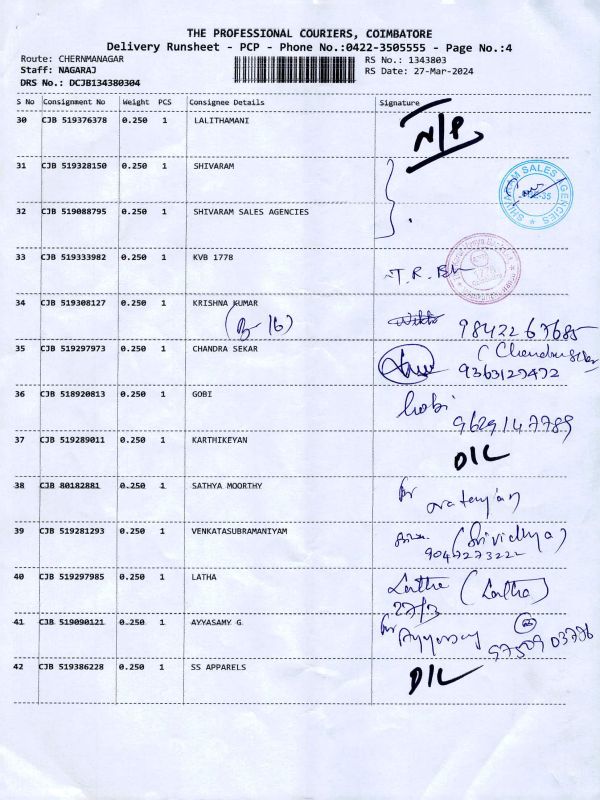 THE PROFESSIONAL COURIERS, COIMBATORE
Delivery Runsheet - PCP - Phone No.:0422-3505555 - Page No.:4
Route: CHERNMANAGAR
RS No.: 1343803
Staff: NAGARAJ
RS Date: 27-Mar-2024
DRS No.: DCJB134380304
S No Consignment No Weight PCS Consignee Details Signature
30 CJB 519376378 0.250 1 LALITHAMANI N/P
31 CJB 519328150 0.250 1 SHIVARAM
SHIVARAM SALES AGENCIES
32 CJB 519088795 0.250 1 SHIVARAM SALES AGENCIES
33 CJB 519333982 0.250 1 KVB 1778 T. R.
34 CJB 519308127 0.250 1 KRISHNA KUMAR 9842267685
(B-16)
35 CJB 519297973 0.250 1 CHANDRA SEKAR
9363129472
36 CJB 518920813 0.250 1 GOBI Gobi
9629147789
37 CJB 519289011 0.250 1 KARTHIKEYAN D/L
38 CJB 80182881 0.250 1 SATHYA MOORTHY for
39 CJB 519281293 0.250 1 VENKATASUBRAMANIYAM (Srividhya)
9047273222
40 CJB 519297985 0.250 1 LATHA Latha (Latha)
27/3
41 CJB 519090121 0.250 1 AYYASAMY G for Ayyasamy
9750903776
42 CJB 519386228 0.250 1 SS APPARELS D/L